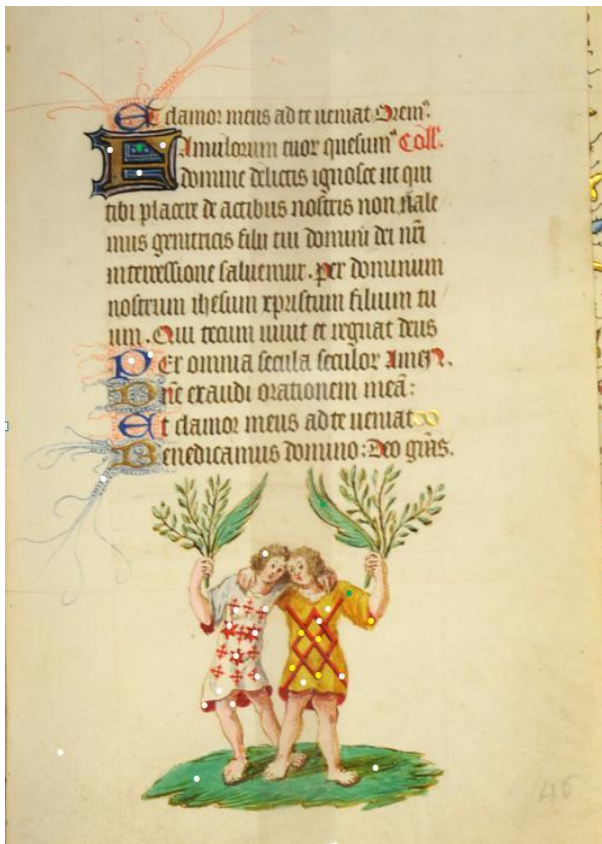 Et clamor meus ad te ueniat Orem⁹
Famulorum tuor quesum⁹ Coll.
domine delictis ignosce ut qui
tibi placere de actibus nostris non uale
mus genitricis filii tui domini dei nr̄i
intercessione saluemur. per dominum
nostrum ihesum xpristum filium tu
um. Qui tecum uiuit et regnat deus
Per omnia secula seculor Amen.
Dn̄e exaudi orationem meā:
Et clamor meus ad te ueniat
Benedicamus domino: Deo gr̄as.
46